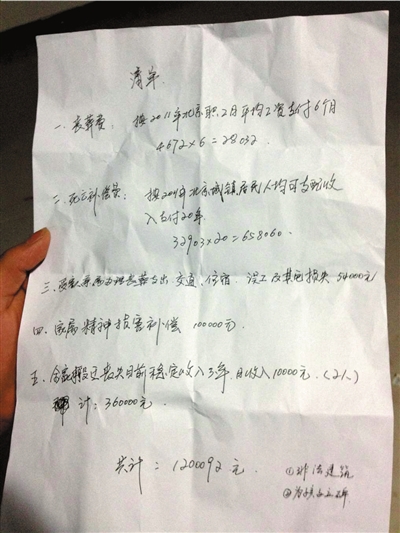 清单
一、丧葬费: 按2011年北京职工月平均工资支付6个月
4672×6=28032.
二、死亡补偿费: 按2011年北京城镇居民人均可支配收
入支付20年
32903×20=658060.
三、受害人亲属办理丧葬支出 交通、住宿、误工及其它损失 54000元
四、家属精神损害补偿 100000元.
五、全家搬迁丧失目前稳定收入3年.月收入10000元.(2人)
计: 360000元.
共计: 1200092元.
①非法建筑
②